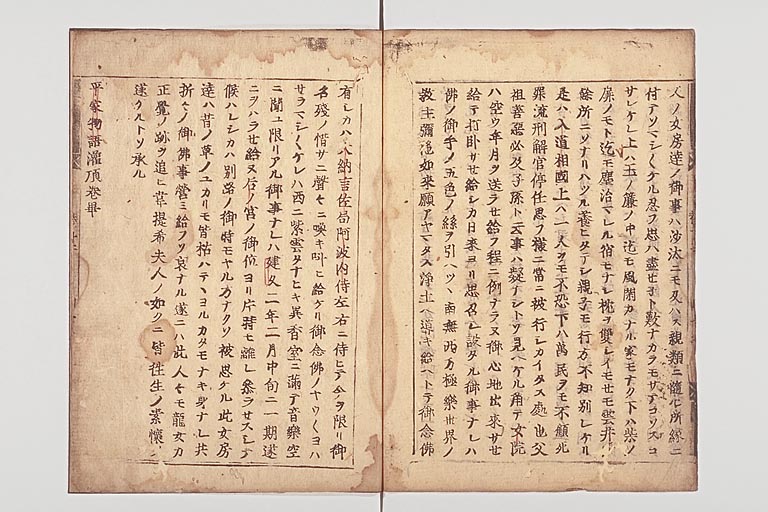 人ノ女房達ノ御事ハ沙汰ニモ及ハス親類ニ随ヒ所縁ニ
付テソマシ〱ケル忍フ思ハ盡セ子ト歎ナカラモサテコソスコ
サレケレ上ハ玉ノ簾ノ中迄モ風閑カナル家モナク下ハ柴ノ
扉ノモト迄モ塵治マレル宿モナシ枕ヲ雙シイモセモ雲井ノ
餘所ニソナリハツル養ヒタテシ親子モ行方不知別レケリ
是ハ入道相國上ハ一人ヲモ不恐下ハ萬民ヲモ不顧死
罪流刑解官停任思フ様ニ常ニ被行シカイタス處也父
祖善惡必及子孫ト云事ハ疑ナシトソ見ヘケル角テ女院
ハ空ウ年月ヲ送ラセ給フ程ニ例ナラヌ御心地出來サセ
給テ打卧サセ給シカ日來ヨリ思召シ設タル御事ナレハ
佛ノ御手ノ五色ノ絲ヲ引ヘツヽ南無西方極樂世界ノ
教主彌陀如來願アヤマタス淨土ヘ導キ給ヘトテ御念佛
有シカハ大納言佐局阿波内侍左右ニ侍ヒテ今ヲ限リ御
名殘ノ惜サニ聲々ニ喚キ叫ヒ給ケリ御念佛ノヤウ〱ヨハ
サラマシ〱ケレハ西ニ紫雲タナヒキ異香室ニ滿テ音樂空
ニ聞ユ限リアル御事ナレハ建久二年二月中旬ニ一期遂
ニヲハラセ給ヌ后ノ宮ノ御位ヨリ片時モ離レ參ラセスシテ
候ハレシカハ別路ノ御時モヤルカタナクソ被思ケル此女房
達ハ昔ノ草ノユカリモ皆枯ハテヽヨルカタモナキ身ナレ共
折々ノ御佛事營ミ給フソ哀ナル遂ニハ此人々モ龍女カ
正覺ノ跡ヲ追ヒ韋提希夫人ノ如クニ皆往生ノ素懷ヲ
遂ケルトソ承ル
平家物語灌頂卷畢